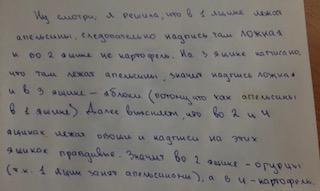 Ну смотри, я решила, что в 1 ящике лежат
апельсины, следовательно надпись там ложная
и во 2 ящике не картофель. На 3 ящике написано,
что там лежат апельсины, значит надпись ложная
и в 3 ящике - яблоки (потому что как апельсины
в 1 ящике). Далее выясняем, что во 2 и 4
ящиках лежат овощи и надписи на этих
ящиках правдивые. Значит во 2 ящике - огурцы
(т.к. 1 ящик занят апельсинами), а в 4 - картофель.